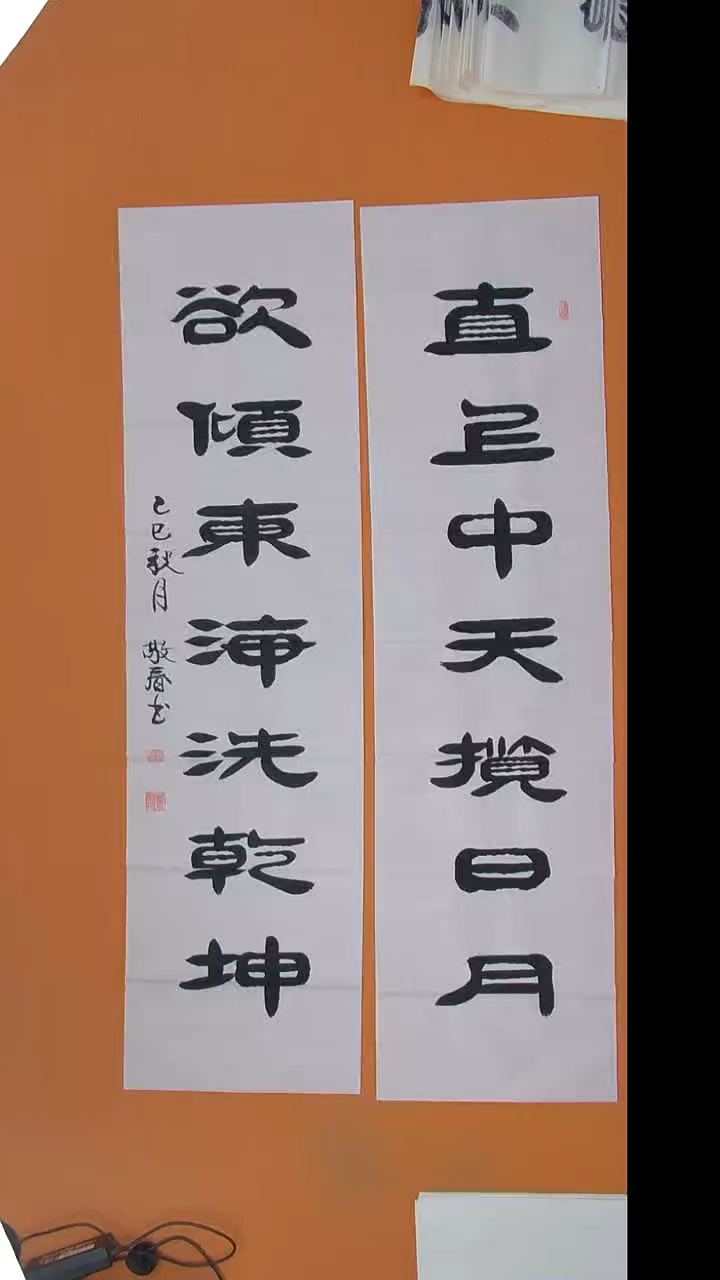 直上中天攬日月
欲傾東海洗乾坤
乙巳秋月 敬春書